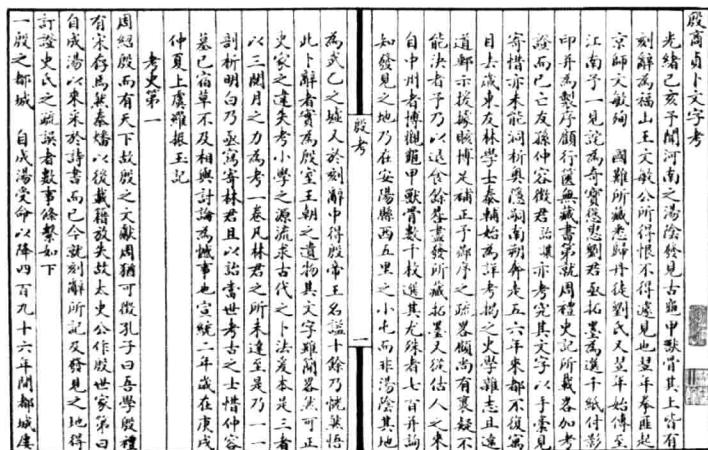 殷商貞卜文字考
光緒己亥予聞河南之湯陰發見古龜甲獸骨其上皆有
刻辭為福山王文敏公所得恨不得遽見也翌年拳匪起
京師文敏殉 國難所藏悉歸丹徒劉氏又翌年始傳至
江南予一見詫為奇寶慫恿劉君亟拓墨為選千紙付影
印并為製序顧行篋無藏書第就周禮史記所載畧加考
證而已亡友孫仲容徵君詒讓亦考究其文字以手藁見
寄惜亦未能洞析奧隱嗣南朔奔走五六年來都不復寓
目去歲東友林學士泰輔始為詳考揭之史學雜志且遠
道郵示援據賅博足補正予曩序之疏畧顧尚有裹疑不
能決者予乃以退食餘晷盡發所藏拓墨又從估人之來
自中州者博觀龜甲獸骨數千枚選其尤殊者七百并詢
知發見之地乃在安陽縣西五里之小屯而非湯陰其地
殷考
一
為武乙之墟又於刻辭中得殷帝王名謚十餘乃恍然悟
此卜辭者實為殷室王朝之遺物其文字雖簡畧然可正
史家之違失考小學之源流求古代之卜法爰本是三者
以三閱月之力為考一卷凡林君之所未達至是乃一一
剖析明白乃亟寫寄林君且以詒當世考古之士惜仲容
墓已宿草不及相與討論為憾事也宣統二年歲在庚戌
仲夏上虞羅振玉記
考史第一
周紹殷而有天下故殷之文獻周猶可徵孔子曰吾學殷禮
有宋存焉然秦燔以後載籍放失故太史公作殷世家第曰
自成湯以來采於詩書而已今就刻辭所記及發見之地得
訂證史氏之疏誤者數事條繫如下
一殷之都城 自成湯受命以降四百九十六年間都城屢